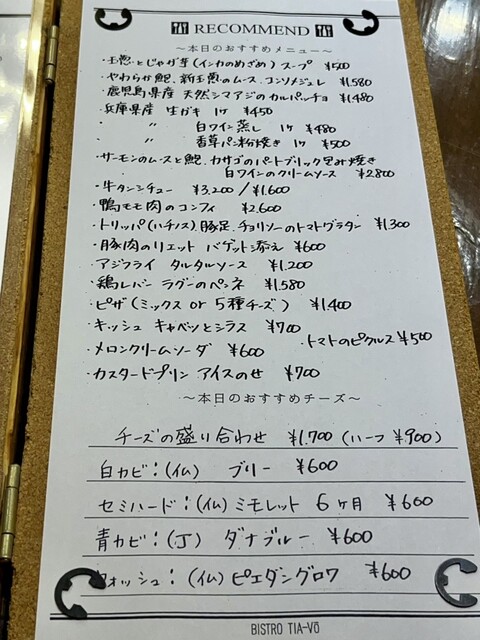 RECOMMEND
～本日のおすすめメニュー～
・玉葱とじゃが芋(インカのめざめ)スープ ¥500
・やわらか鮑、新玉葱のムース、コンソメジュレ ¥1,580
・鹿児島県産 天然シマアジのカルパッチョ ¥1,480
・兵庫県産 生ガキ 1ケ ¥450
〃 〃 白ワイン蒸し 1ケ ¥480
〃 〃 香草パン粉焼き 1ケ ¥500
・サーモンのムースと鮑、カサゴのパートブリック包み焼き
白ワインのクリームソース ¥2,800
・牛タンシチュー ¥3,200/¥1,600
・鴨モモ肉のコンフィ ¥2,600
・トリッパ(ハチノス)豚足、チョリソーのトマトグラタン ¥1,300
・豚肉のリエット バゲット添え ¥600
・アジフライ タルタルソース ¥1,200
・鶏レバー ラグーのペンネ ¥1,580
・ピザ(ミックス or 5種チーズ) ¥1,400
・キッシュ キャベツとシラス ¥700
・トマトのピクルス ¥500
・メロンクリームソーダ ¥600
・カスタードプリン アイスのせ ¥700
～本日のおすすめチーズ～
チーズの盛り合わせ ¥1,700 (ハーフ ¥900)
白カビ:(仏) ブリー ¥600
セミハード:(仏)ミモレット 6ヶ月 ¥600
青カビ:(丁) ダナブルー ¥600
ウォッシュ:(仏)ピエダングロワ ¥600
BISTRO TIA-Vō